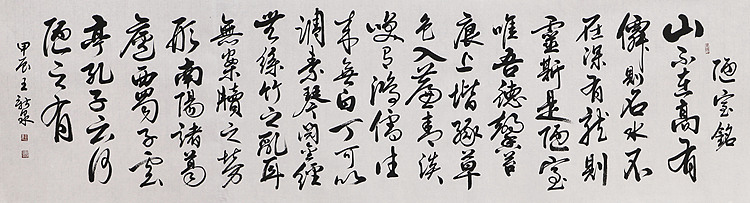 陋室銘
山不在高有
僊則名水不
在深有龍則
靈斯是陋室
唯吾德馨苔
痕上階綠草
色入簾青談
咲有鴻儒往
來無白丁可以
調素琴閱金經
無絲竹之亂耳
無案牘之勞
形南陽諸葛
廬西蜀子雲
亭孔子云何
陋之有
甲辰王新泉